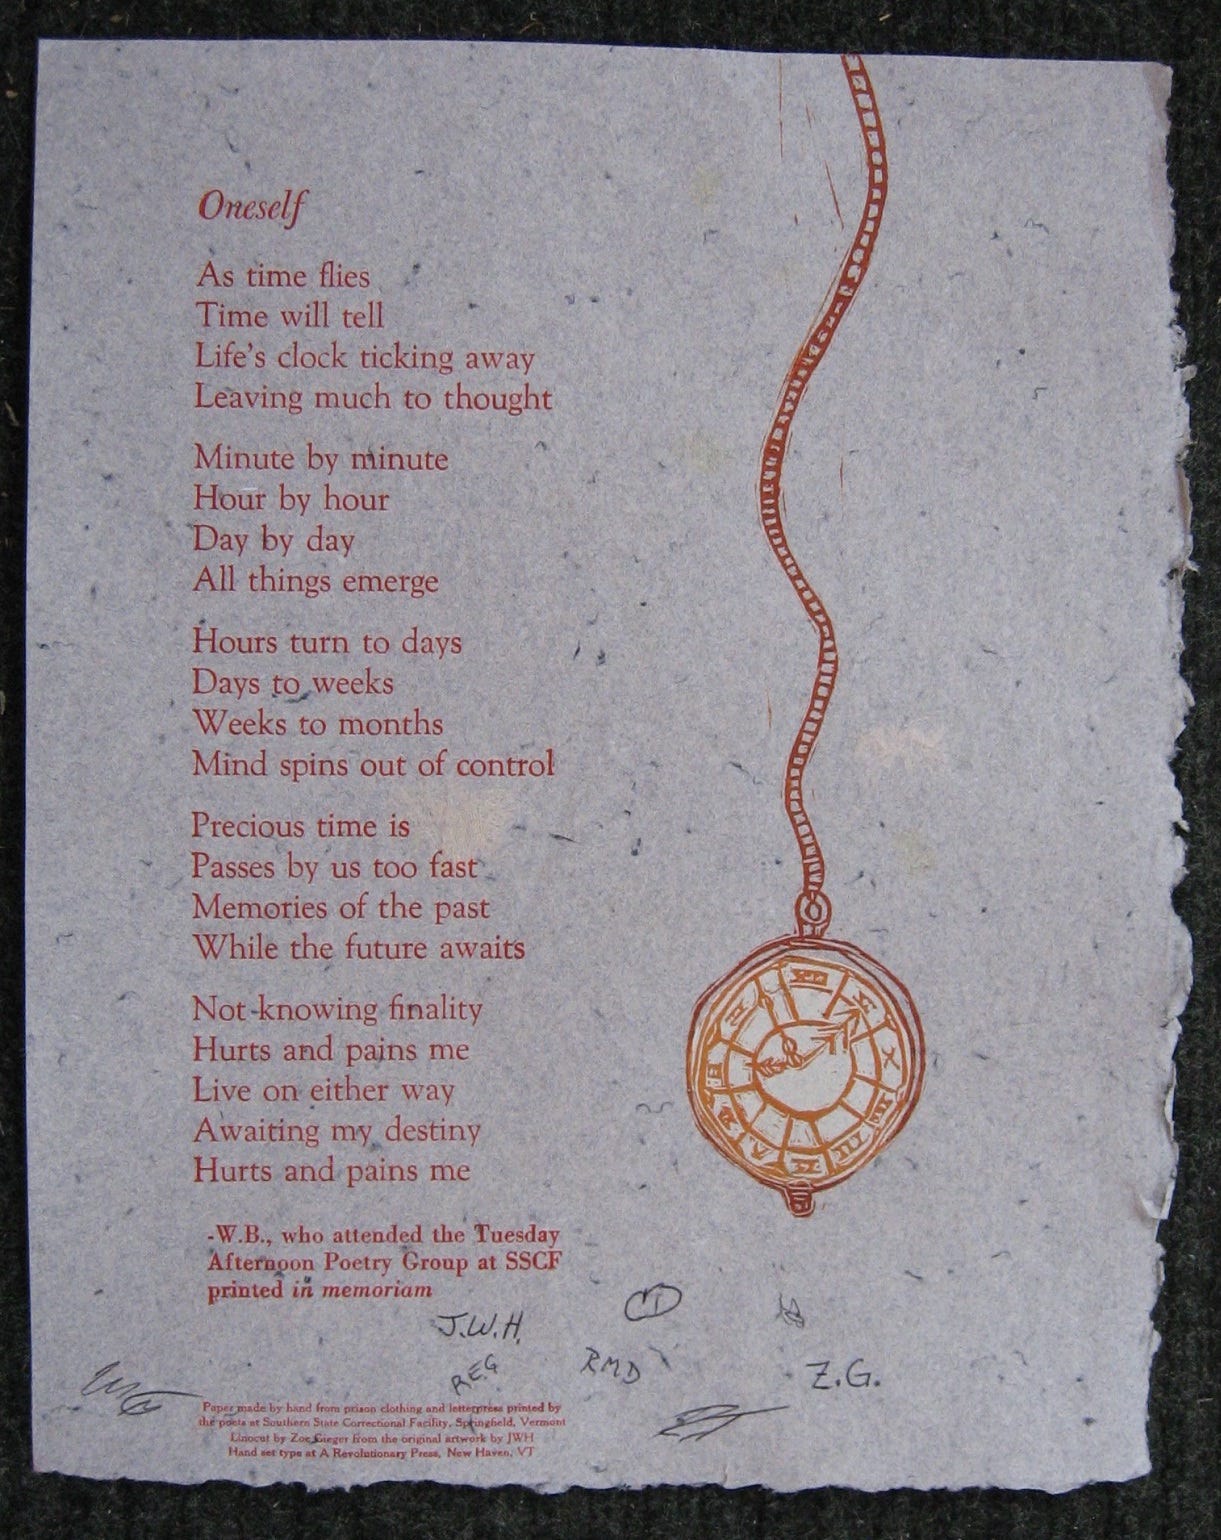 Oneself
As time flies
Time will tell
Life's clock ticking away
Leaving much to thought
Minute by minute
Hour by hour
Day by day
All things emerge
Hours turn to days
Days to weeks
Weeks to months
Mind spins out of control
Precious time is
Passes by us too fast
Memories of the past
While the future awaits
Not knowing finality
Hurts and pains me
Live on either way
Awaiting my destiny
Hurts and pains me
-W.B., who attended the Tuesday
Afternoon Poetry Group at SSCF
printed in memoriam
J.W.H.
REG
RMD
Z.G.
Paper made by hand from prison clothing and letterpress printed by
the poets at Southern State Correctional Facility, Springfield, Vermont
Linocut by Zoe Gieger from the original artwork by JWH
Hand set type at A Revolutionary Press, New Haven, VT